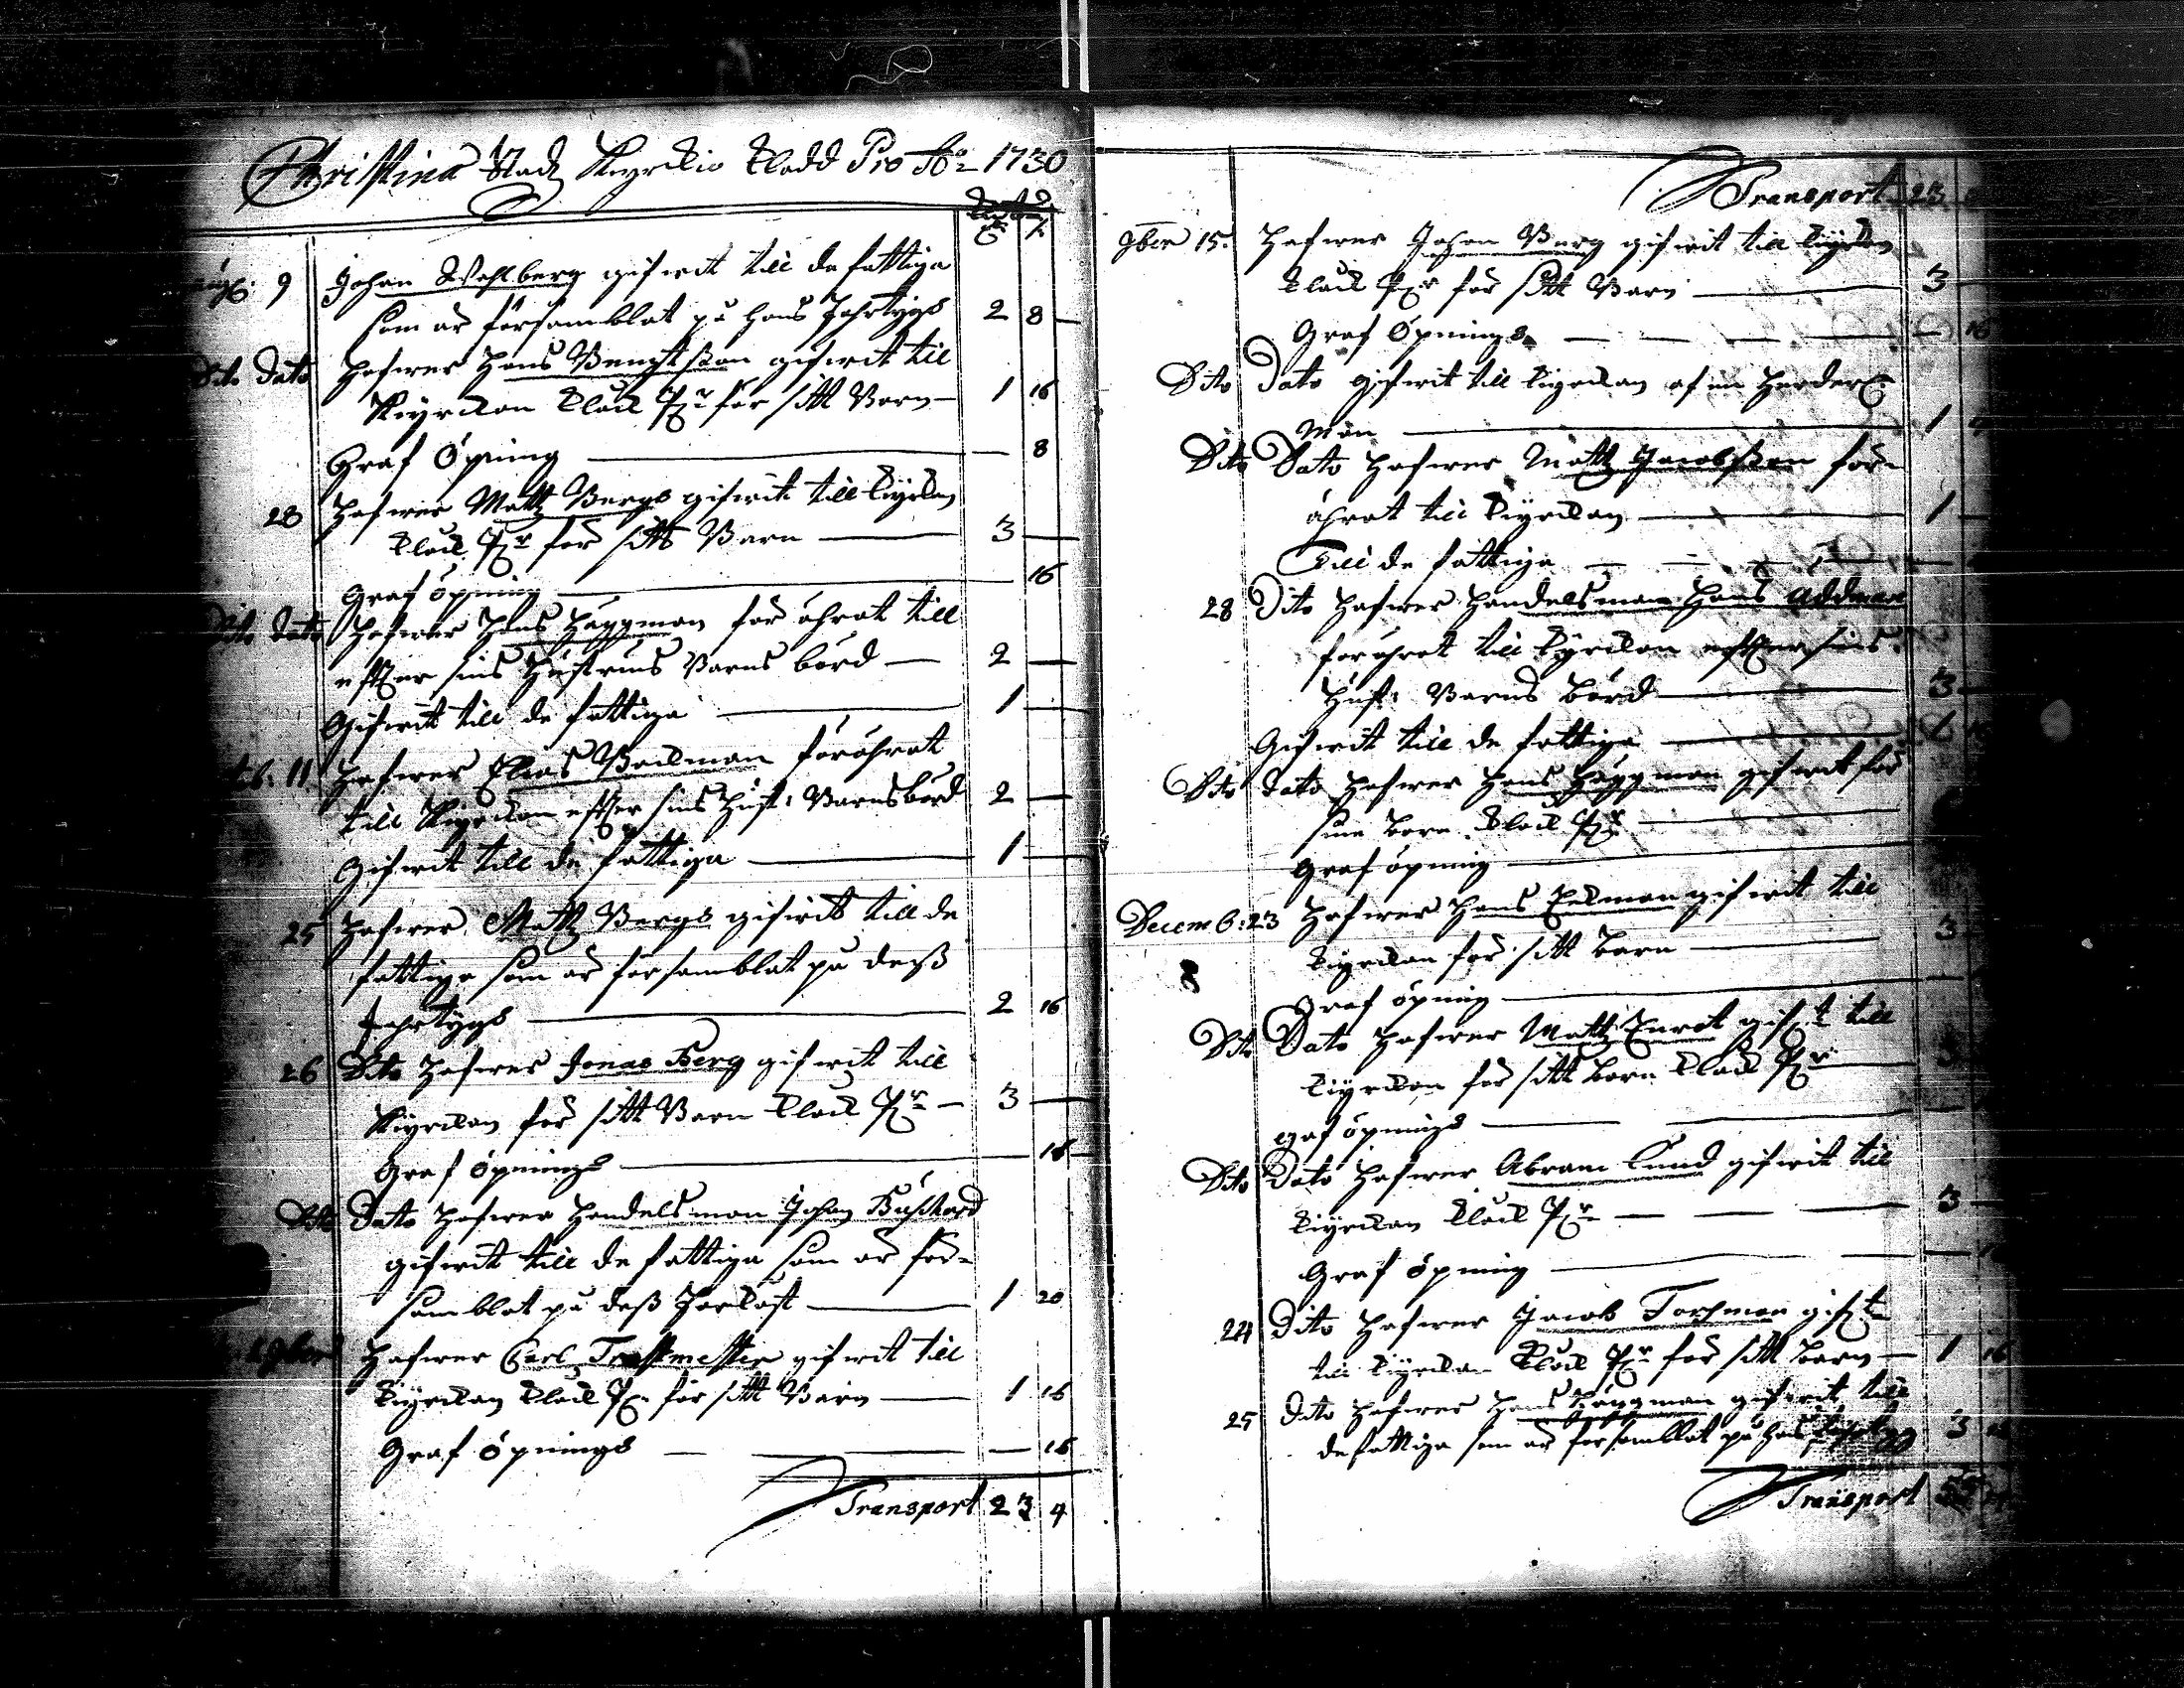 Christina Stadz Kyrckio Cladd Pro Ao 1730
Augt: 9 Johan Wahlberg gifwit till de fattiga
som är församblat på hans fahrtygs 2 8
Dito Dato hafwer Hans Bengtsson gifwit till
Kyrckan Klock Pgr för sitt Barn 1 16
Graf Öpning 8
28 hafwer Matz Bergs gifwit till Kyrckan
Klock Pgr för sitt Barn 3
Graf öpning 16
Dito Dato hafwer Hans Häggman förährat till
efter sins Hustrus Barns börd 2
Gifwit till de fattiga 1
11 hafwer Elias Backman förährat
till Kyrckan efter sins Hust: Barnsbörd 2
Gifwit till de fattiga 1
25 hafwer Matz Bergs gifwit till de
fattiga som är församblat på dess
fahrtygs 2 16
26 Dito hafwer Jonas Berg gifwit till
Kyrckan för sitt Barn Klock Pgr 3
Graf öpnings 16
Dito Dato hafwer Handelsman Johan
gifwit till de fattiga som är för=
samblat på dess 1 20
hafwer Carl gifwit till
Kyrckan Klock Pgr för sitt Barn 1 16
Graf öpnings 16
Transport 23 4
Transport 23
9ber 15. hafwer Johan Berg gifwit till Kyrckan
Klock Pgr för sitt Barn 3
Graf Öpnings 16
Dito Dato gifwit till Kyrckan af en
Man 1
Dito Dato hafwer Matz Jacobsson för=
ährat till Kyrckan 1
Till de fattiga
28 Dito hafwer Handelsman Hans Uddman
förährat till Kyrckan efter sins
Hust: Barns Börd 3
Gifwit till de fattiga 1
Dito dato hafwer Hans Häggman gifwit för
sine barn Klock Pgr
Graf öpning
Decemb: 23 hafwer Hans Eckman gifwit till
Kyrckan för sitt barn 3
Graf öpning
Dito Dato hafwer Matz gift till
Kyrckan för sitt barn Klock Pgr 3
graf öpnings
Dito Dato hafwer Abram Lund gifwit till
Kyrckan Klock Pgr 3
Graf öpning
24 Dito hafwer Jacob Forsman gift
till Kyrckan Klock Pgr för sitt barn 1 16
25 Dito hafwer Hans Häggman gifwit till
de fattiga som är församblat på hans 3
Transport 55